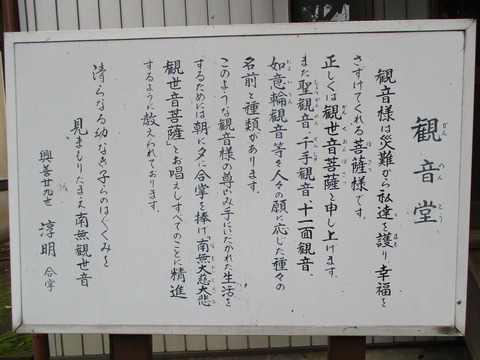 観音堂
観音様は災難から私達を護り幸福を
さずけてくれる菩薩様です。
正しくは観世音菩薩と申し上げます。
また聖観音、千手観音、十一面観音、
如意輪観音等々人々の願に応じた種々の
名前と種類があります。
このような観音様の尊いみ手にいだかれた生活を
するためには朝に夕に合掌を捧げ「南無大慈大悲
観世音菩薩」とお唱えしすべてのことに精進
するように教えられております。
清らなる幼なき子らのはぐくみを
見まもりたまえ南無観世音
興善廿九世 淳明 合掌